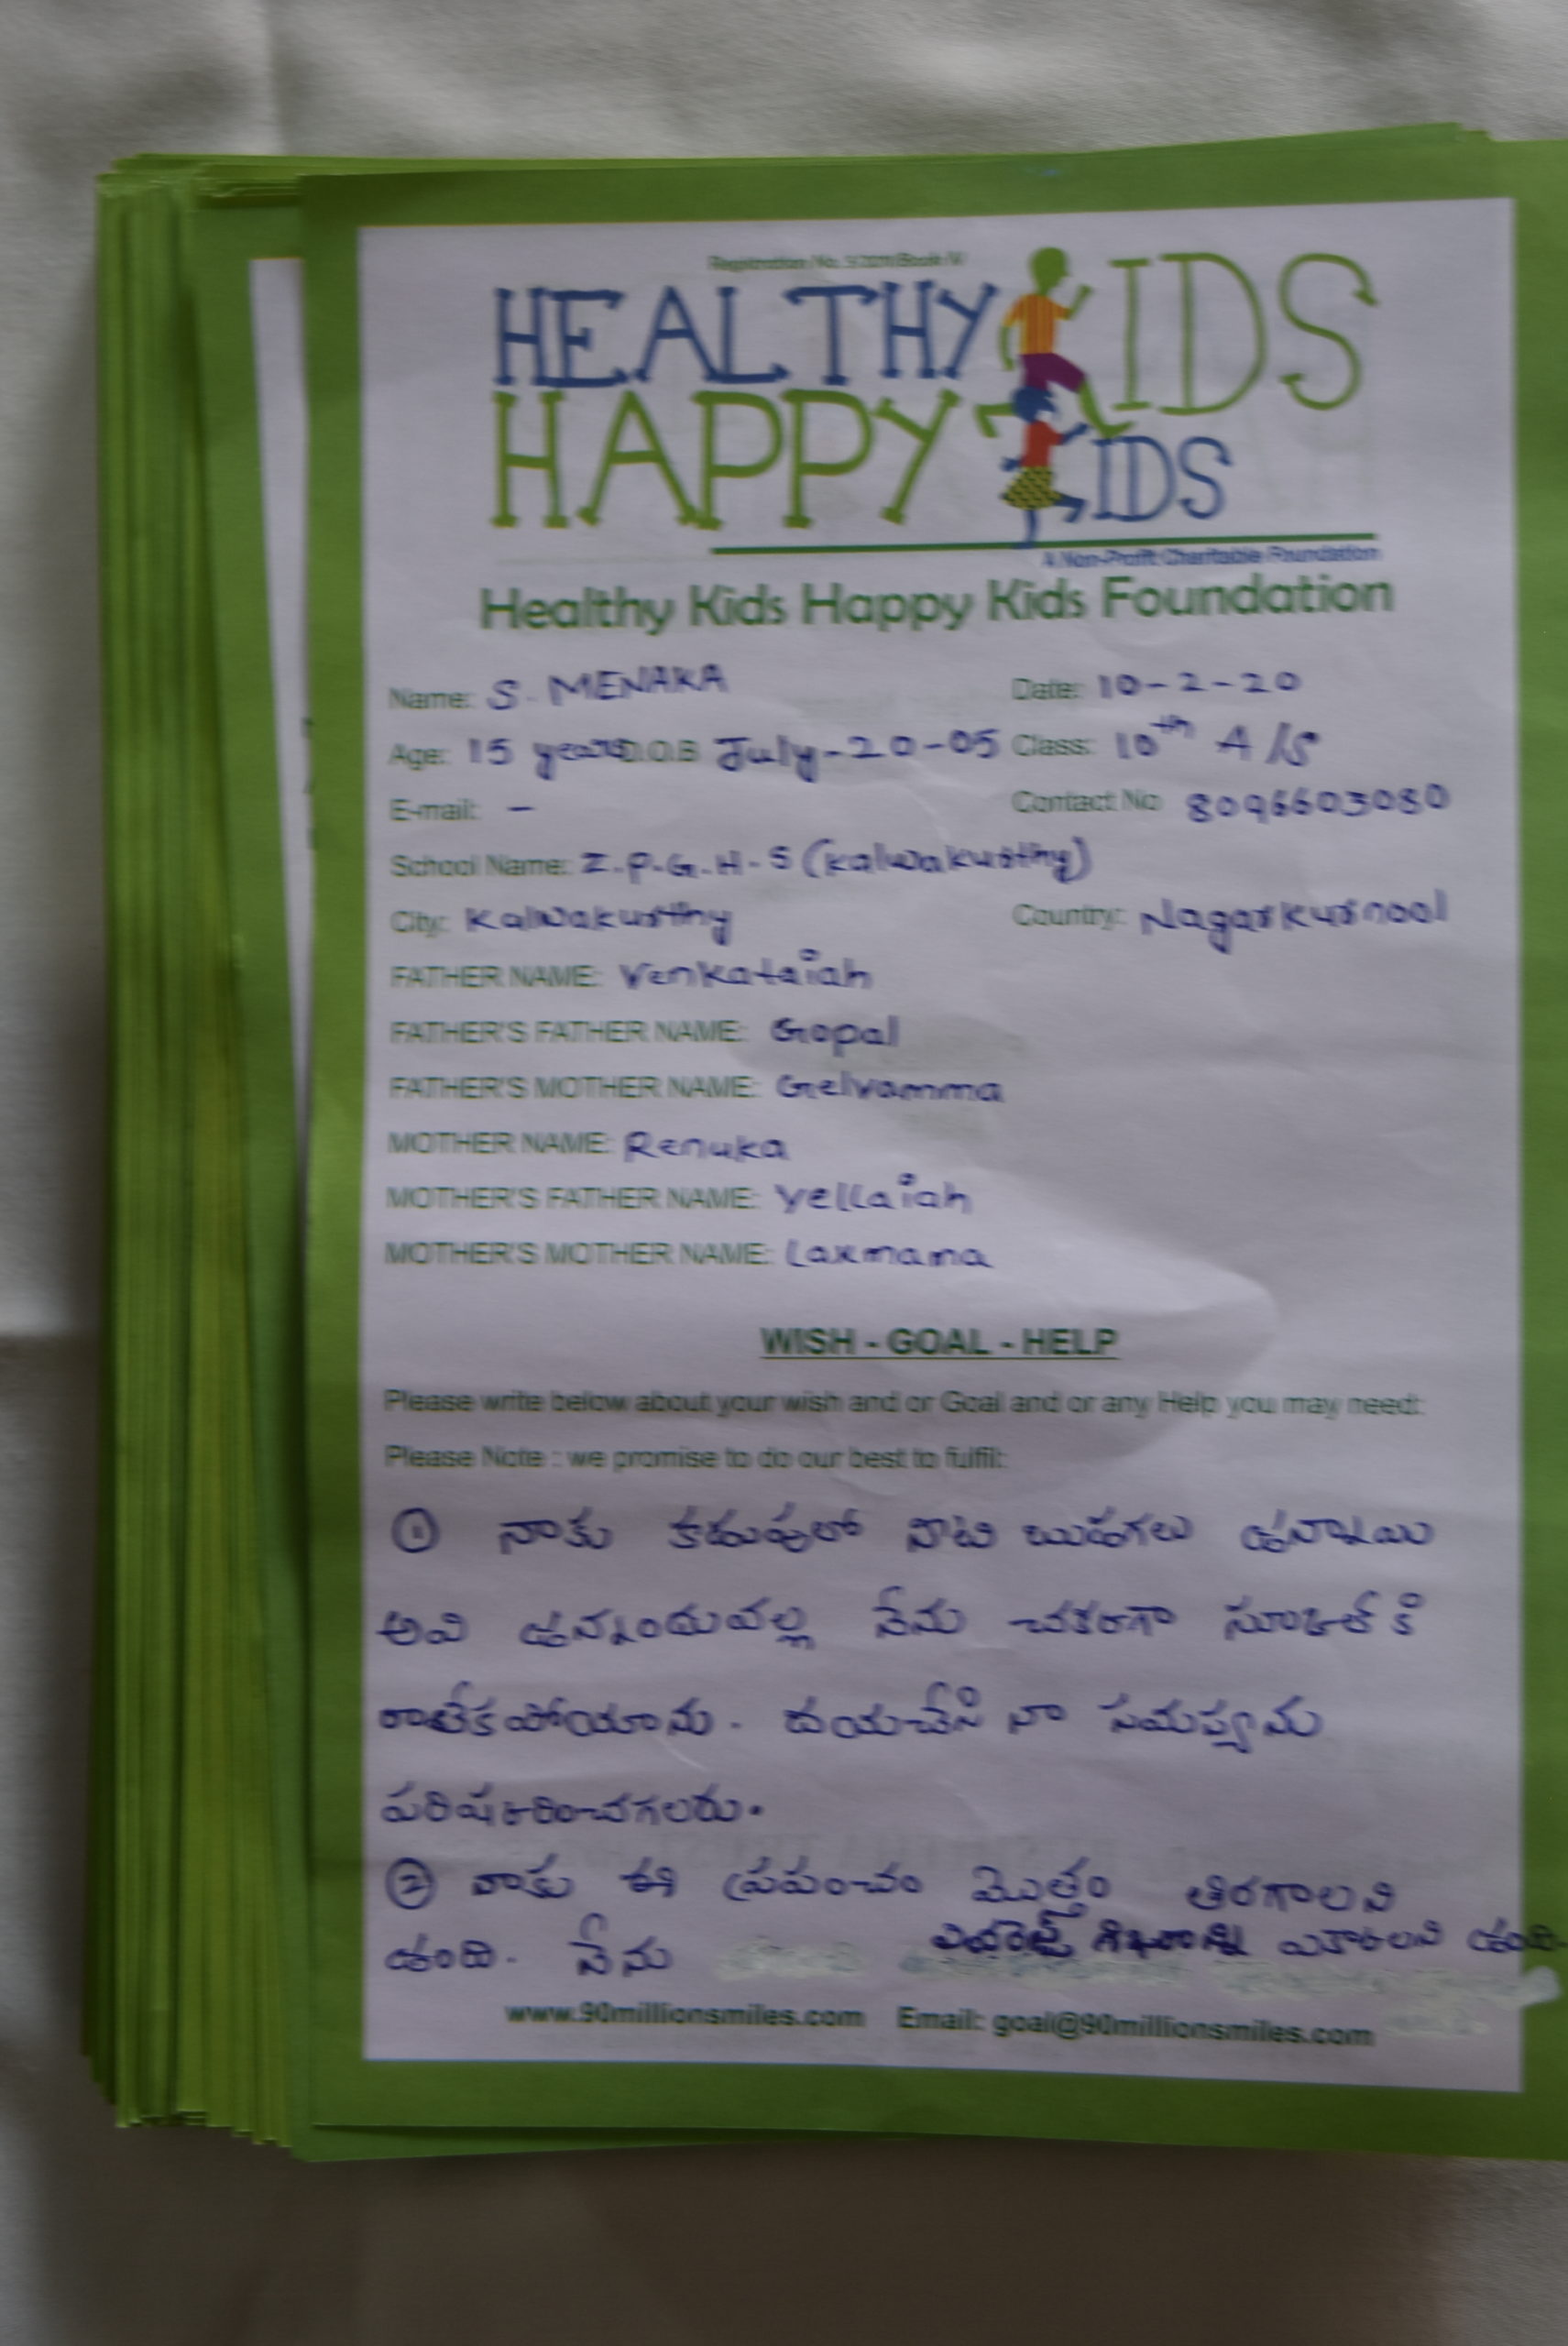 Registration No. 5/2011/Book IV
HEALTHY KIDS
HAPPY KIDS
A Non-Profit Charitable Foundation
Healthy Kids Happy Kids Foundation
Name: S. MENAKA Date: 10-2-20
Age: 15 years D.O.B July-20-05 Class: 10th A/S
E-mail: - Contact No 8096603080
School Name: Z.P.G.H.S (kalwakurthy)
City: Kalwakurthy Country: Nagarkurnool
FATHER NAME: Venkataiah
FATHER'S FATHER NAME: Gopal
FATHER'S MOTHER NAME: Gelvamma
MOTHER NAME: Renuka
MOTHER'S FATHER NAME: Yellaiah
MOTHER'S MOTHER NAME: Laxmama
WISH - GOAL - HELP
Please write below about your wish and or Goal and or any Help you may need:
Please Note : we promise to do our best to fulfil:
① నాకు కడుపులో నీటి బుడగలు ఉన్నాయి
అవి ఉన్నందువల్ల నేను చకరగా సూకల్ కి
రాలేకపోయాను. దయచేసి నా సమస్యను
పరిషకరించగలరు.
② నాకు ఈ ప్రపంచం మొత్తం తిరగాలని
ఉంది. నేను ఎవరెస్ట్ ఎకాలని ఉంది.
www.90millionsmiles.com Email: goal@90millionsmiles.com